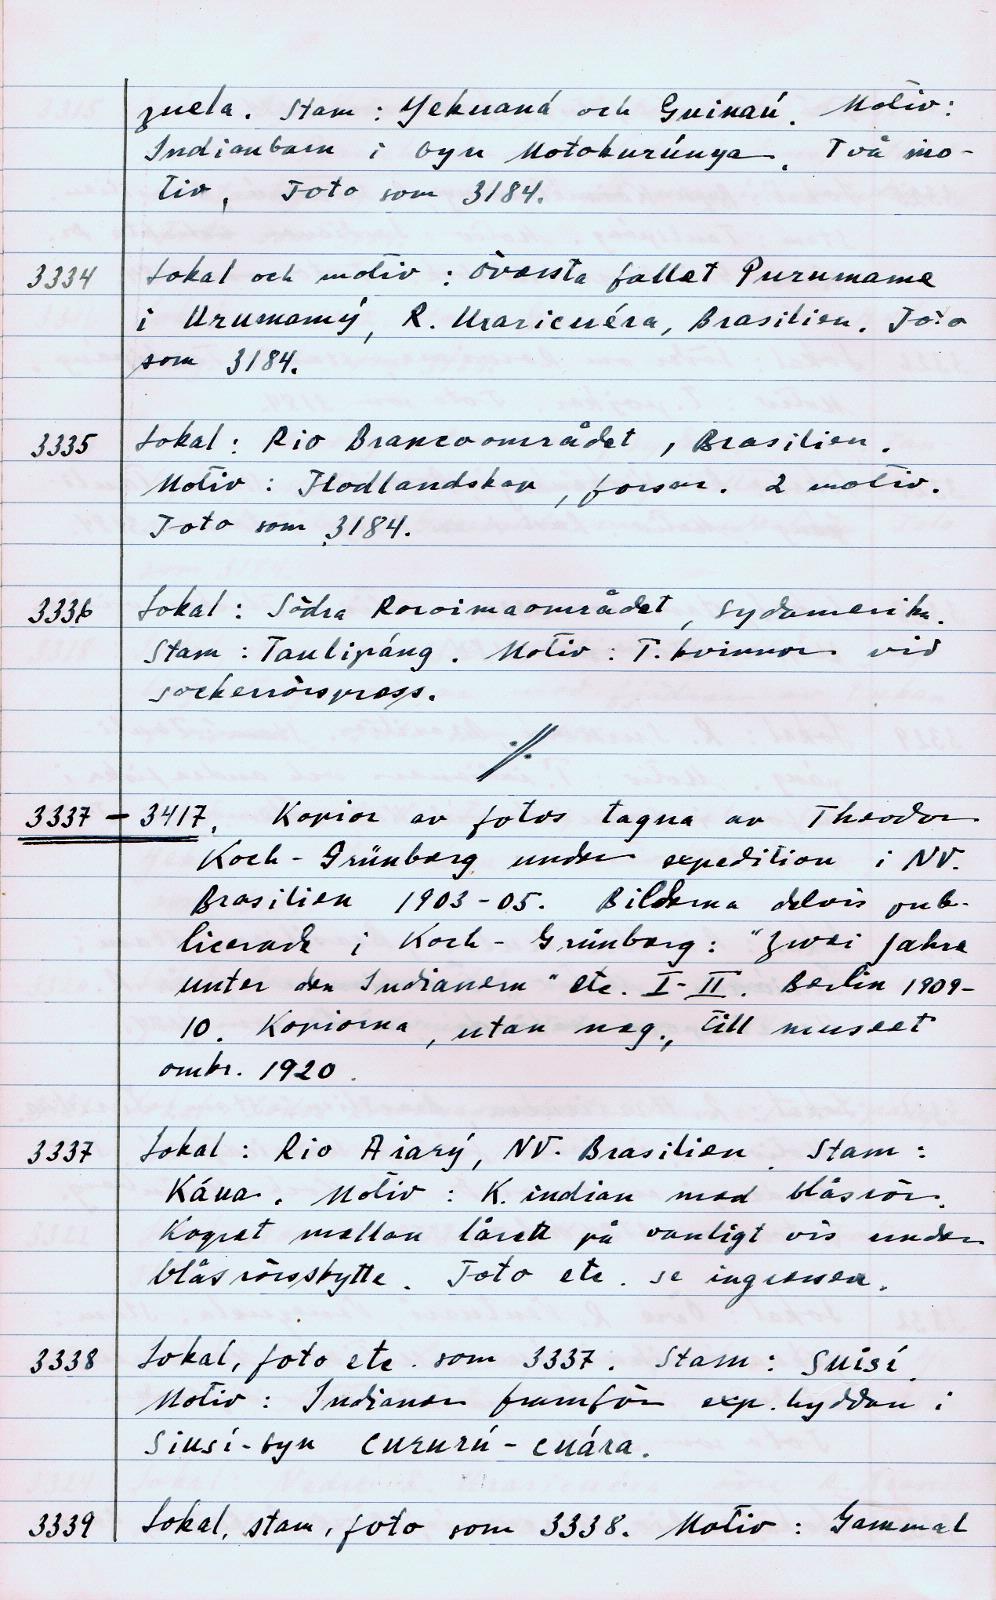 zuela. Stam : Yekuaná och Guinaú. Motiv:
Indianbarn i byn Motokurúnya. Två mo-
tiv, Foto som 3184.
3334 Lokal och motiv : översta fallet Purumame
i Urumamý, R. Uraricuéra, Brasilien. Foto
som 3184.
3335 Lokal : Rio Brancoområdet, Brasilien.
Motiv : Flodlandskap, forsar. 2 motiv.
Foto som 3184.
3336 Lokal : Södra Roroimaområdet, Sydamerika.
Stam : Taulipáng. Motiv : T. kvinnor vid
sockerrörspress.
./.
3337 - 3417. Kopior av fotos tagna av Theodor
Koch-Grünberg under expedition i NV.
Brasilien 1903-05. Bilderna delvis pub-
licerade i Koch-Grünberg: "Zwei Jahre
unter den Indianern" etc. I-II. Berlin 1909-
10. Kopiorna, utan neg., till museet
omkr. 1920.
3337 Lokal : Rio Aiarý, NV. Brasilien. Stam :
Káua. Motiv : K. indian med blåsrör.
Kogret mellan låren på vanligt vis under
blåsrörsskytte. Foto etc. se ingressen.
3338 Lokal, foto etc. som 3337. Stam : Suisí.
Motiv : Indianer framför exp. hyddan i
Siusí-byn Cururú-cuára.
3339 Lokal, stam, foto som 3338. Motiv : Gammal